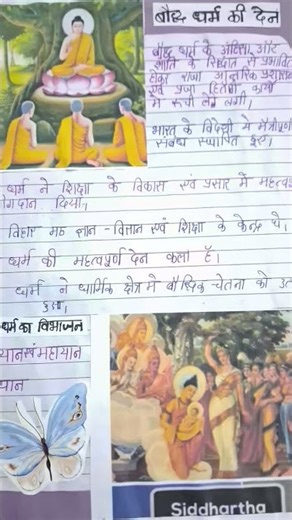 बौद्ध धर्म की देन
बौद्ध धर्म के अहिंसा और
शांति के सिद्धांत से प्रभावित
होकर राजा आन्तरिक प्रशासन
एवं प्रजा हितैषी कार्यो
में रूची लेने लगी।
भारत के विदेशों में मैत्रीपूर्ण
संबंध स्थापित हुए।
धर्म ने शिक्षा के विकास एवं प्रसार में महत्वपू
गदान दिया।
विहार मठ ज्ञान - विज्ञान एवं शिक्षा के केन्द्र थे।
धर्म की महत्वपूर्ण देन कला है।
धर्म ने धार्मिक क्षेत्र में बौद्धिक चेतना को उत
धर्म का विभाजन
यान एवं महायान
यान
Siddhartha